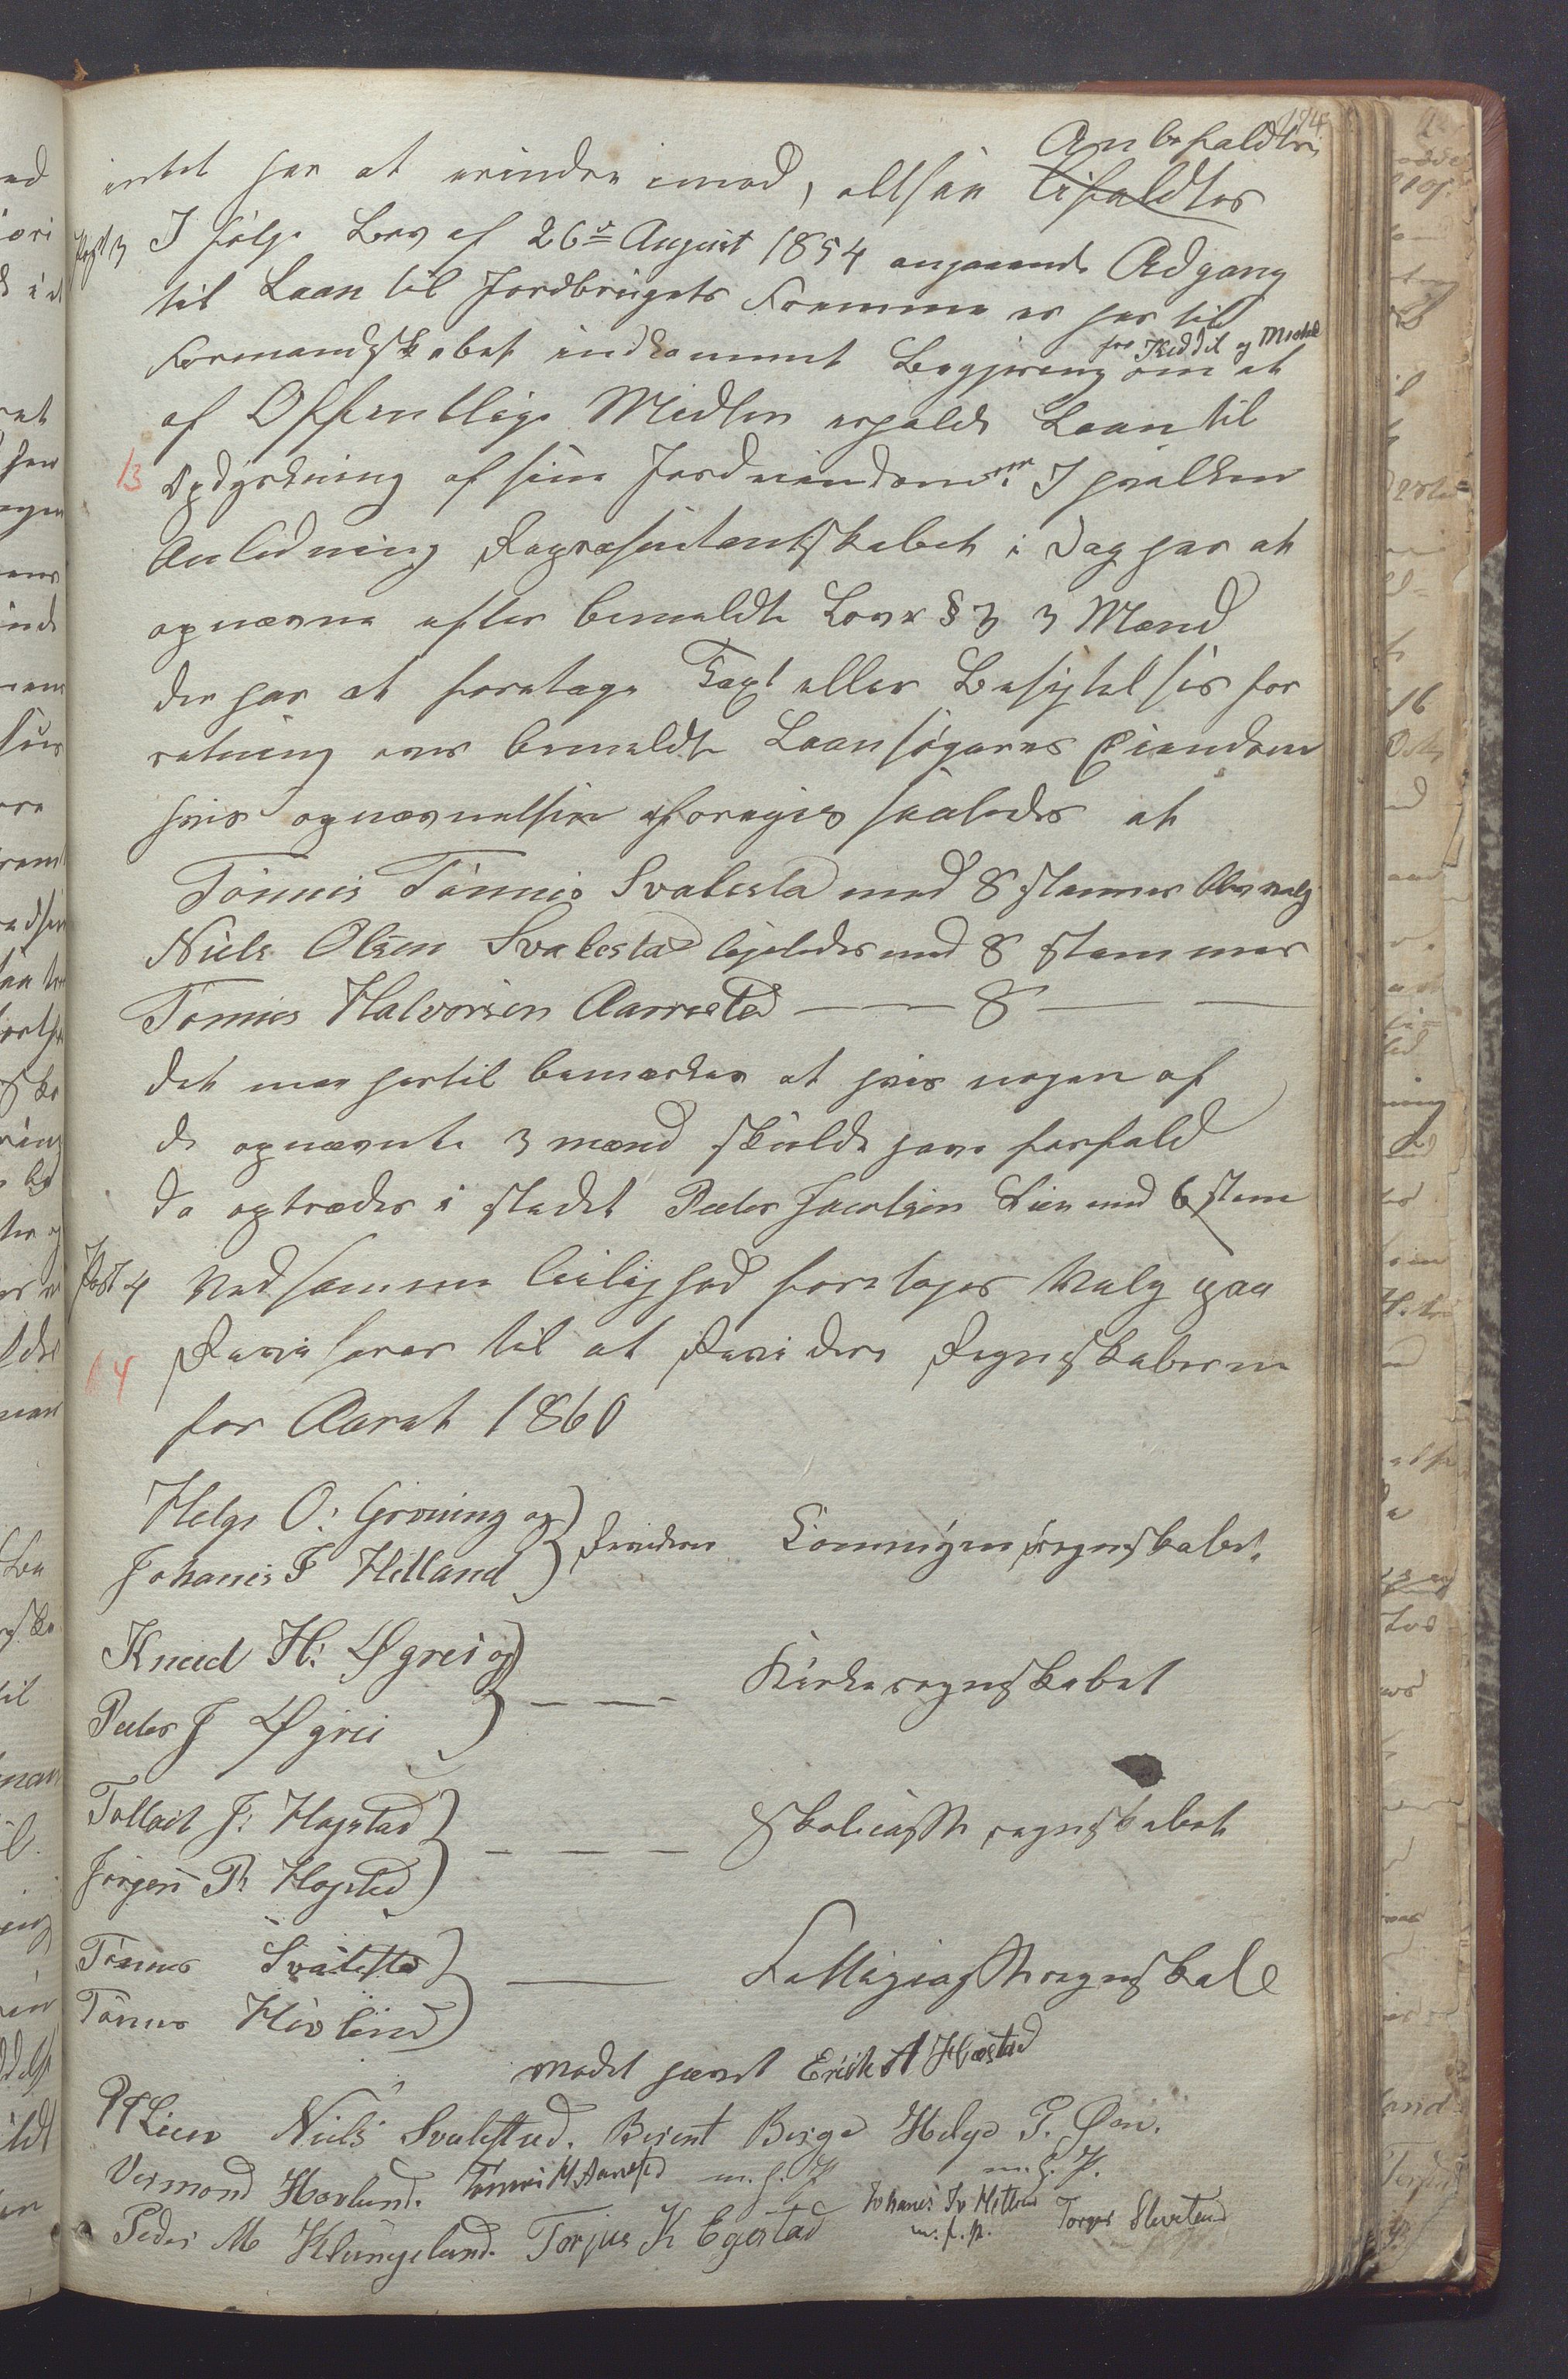 194
Anbefaldtes
intet har at erindre imod, altsaa bifaldtes
Post 3 I følge Lov af 26de August 1854 angaaende Adgang
til Laan til Jordbrugets Fremme er her til
Formandskabet indkommet Begjæring om at
fra Keddel og Mickel
af Offentlige Midler erholde Laan til
13 Opdyrkning af sine Jordeiendomme. I hvilken
Anledning Repræsentantskabet i Dag har at
opnævne efter bemeldte Lovs § 3 3 Mænd
der har at foretage Taxt eller Besigtelses for
retning over bemeldte Laansøgeres Eiendom
hvis opnævnelsen foregik saaledes at
Tønnis Tønnis Svalesta med 8 stemmer blev valg
Niels Olsen Svalestad ligeledes med 8 stemmer
Tønnies Halvorsen Aarrestad — 8 — —
det maa hertil bemærkes at hvis nogen af
de opnævnte 3 mænd skulde have forfald
da optræder i stedet Peder Jacobsen Lien med 6 stem
Post 4 Ved samme leilighed foretoges Valg paa
Revisorer til at Revidere Regnskaberne
14
for Aaret 1860
Helge O: Grøning og
Johanes F Helland } Reviderer Communeregnskabet.
Knud H: Øgrei og
Peder J Øgrei } — — Kirkeregnskabet
Tollack J: Hapstad
Jørgen P: Hapstad } — — — Skolekasse regnskabet
Tønnes Svalestad
Tønnes Hovland } — Fattigkasseregnskabe
Mødet hævet Erick A Hæstad
P J Lien Niels Svalestad. Berent Berge Helge G. Øen.
Vermond Hovland. Tønnes H Aarrestad m. f. P. m. f. P.
Peder M Klungeland. Torjus K Egestad Johanes Helland m. f. p. Torger Sleveland